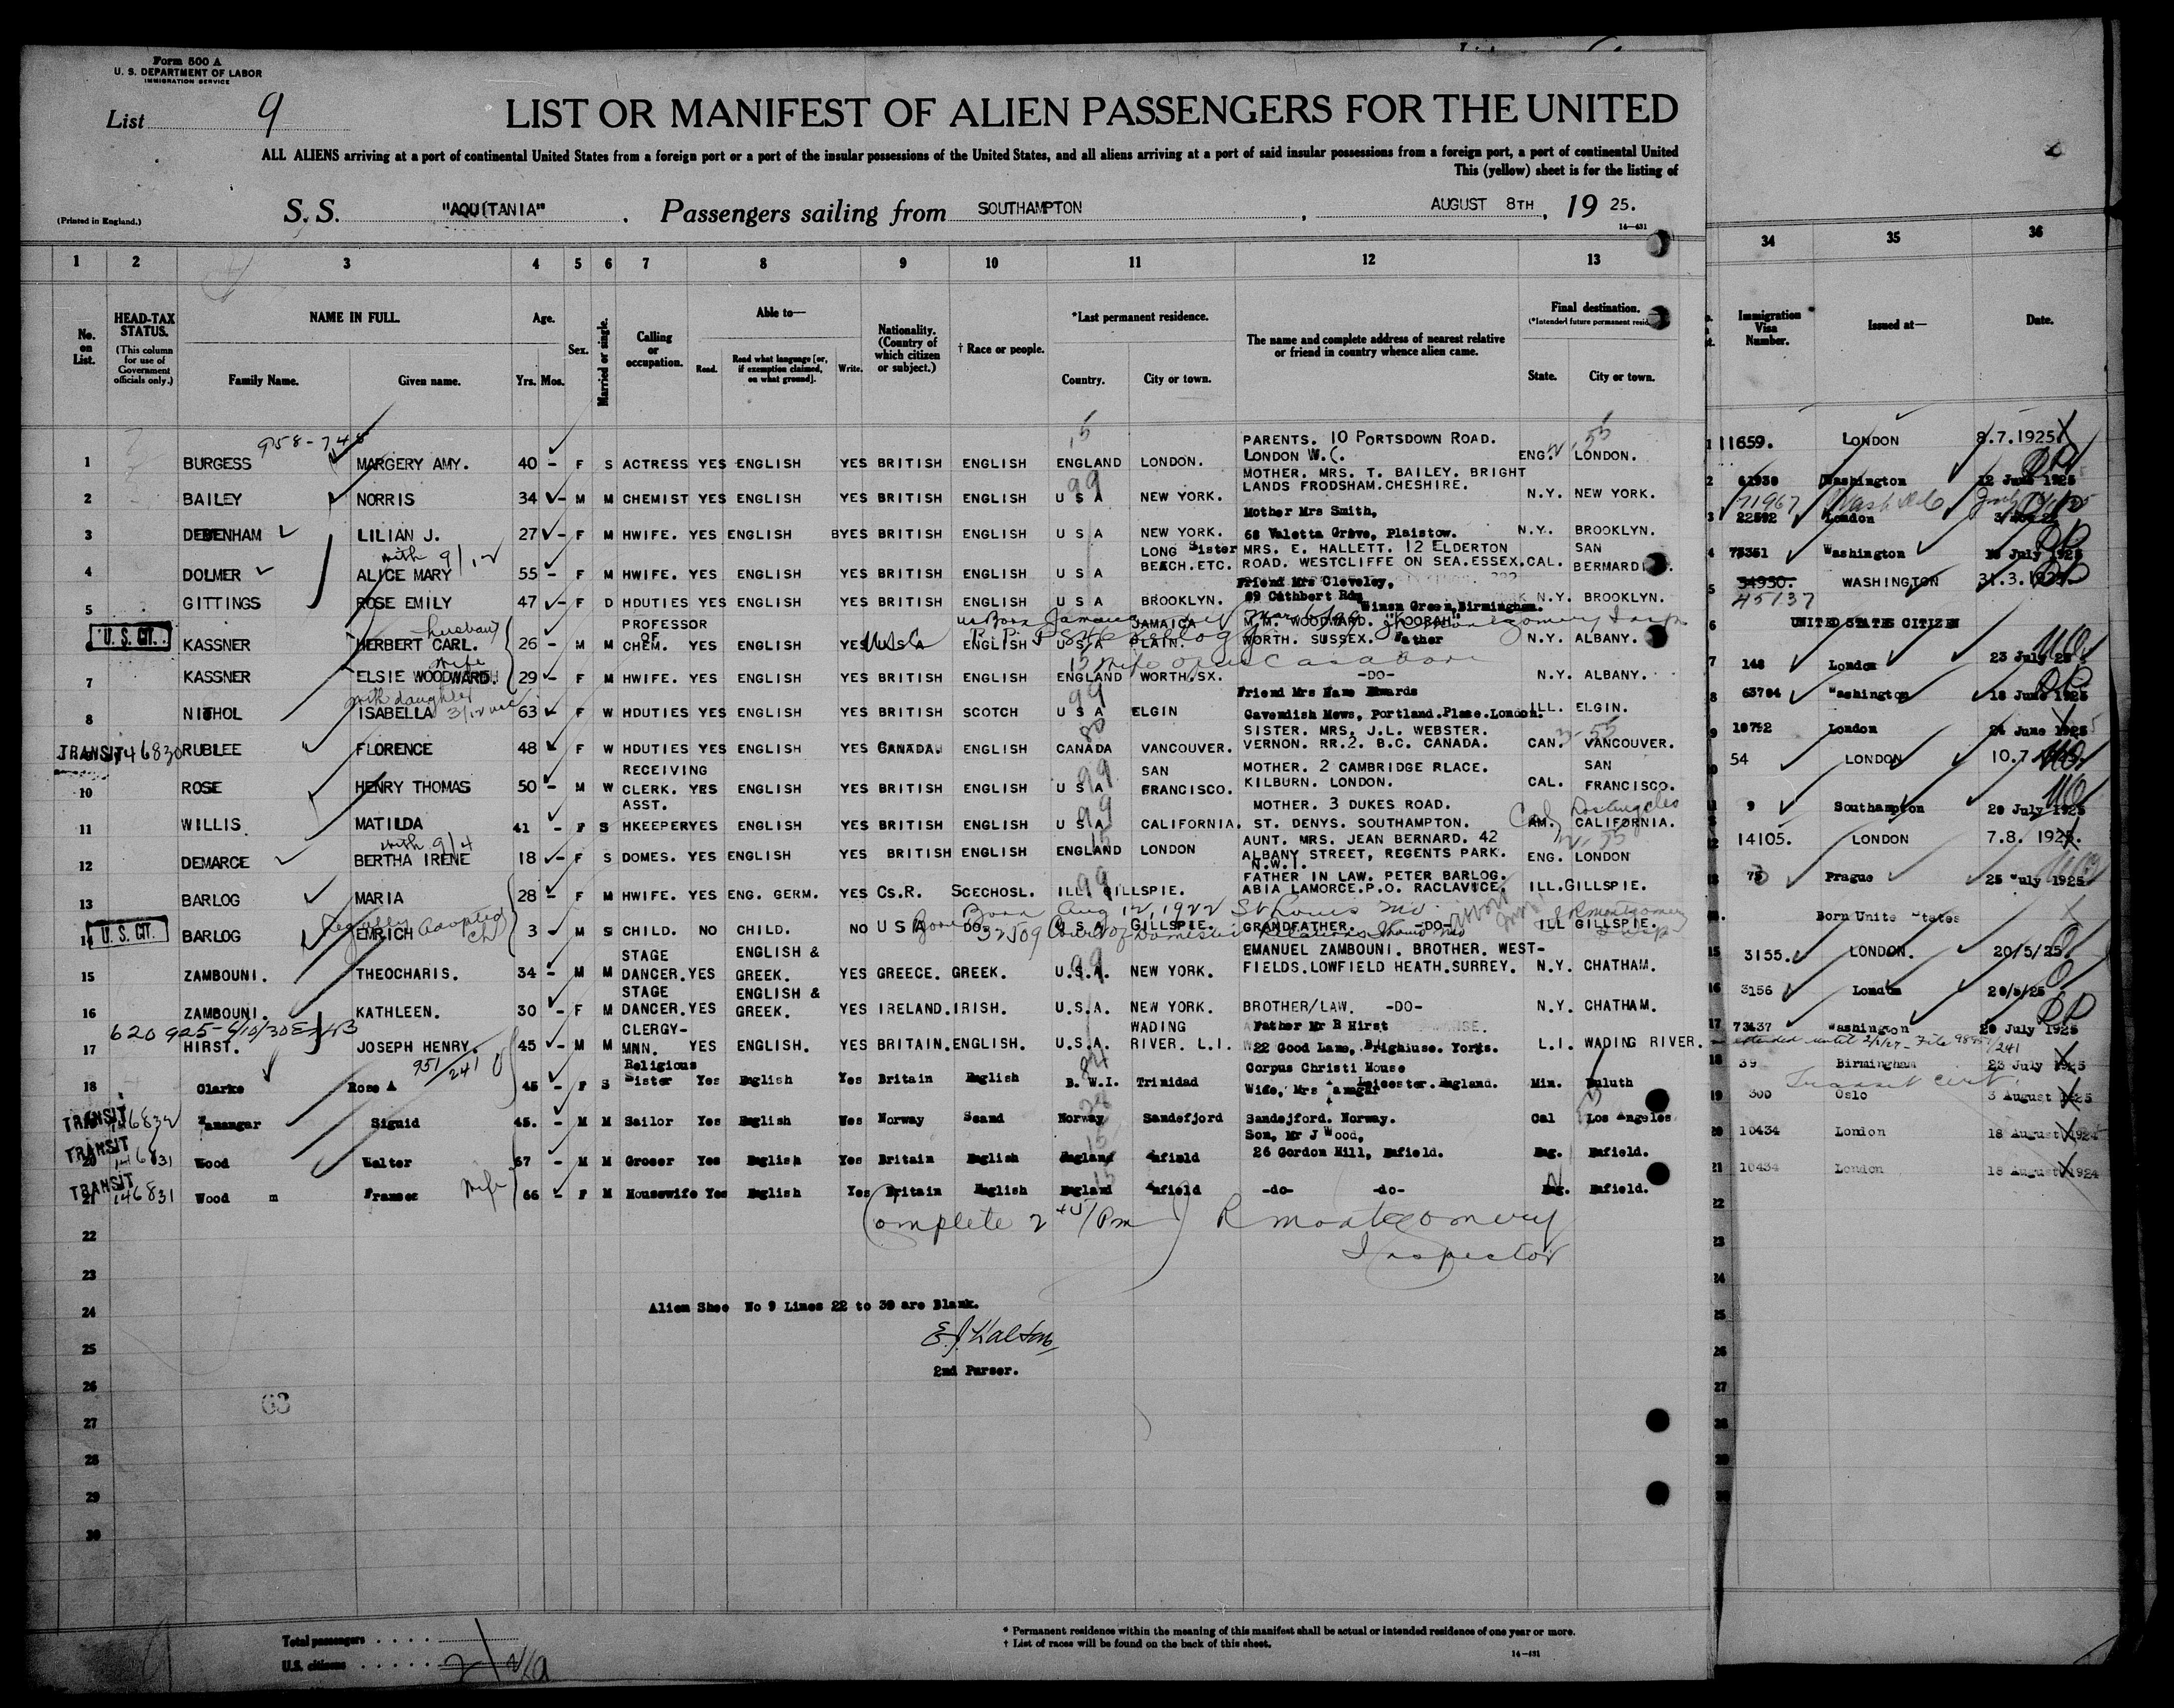 Form 500 A
U. S. DEPARTMENT OF LABOR
IMMIGRATION SERVICE
List 9
LIST OR MANIFEST OF ALIEN PASSENGERS FOR THE UNITED
ALL ALIENS arriving at a port of continental United States from a foreign port or a port of the insular possessions of the United States, and all aliens arriving at a port of said insular possessions from a foreign port, a port of continental United
This (yellow) sheet is for the listing of
(Printed in England.)
S. S. "AQUITANIA". Passengers sailing from SOUTHAMPTON, AUGUST 8TH, 19 25.
14—431
1 2 3 4 5 6 7 8 9 10 11 12 13 34 35 36
No. on List.
HEAD-TAX STATUS.
(This column for use of Government officials only.)
NAME IN FULL.
Family Name. Given name.
Age.
Yrs. Mos.
Sex.
Married or single.
Calling or occupation.
Able to—
Read. Read what language [or, if exemption claimed, on what ground]. Write.
Nationality. (Country of which citizen or subject.)
† Race or people.
*Last permanent residence.
Country. City or town.
The name and complete address of nearest relative or friend in country whence alien came.
Final destination.
State. City or town.
Immigration Visa Number.
Issued at—
Date.
958-748
15
PARENTS. 10 PORTSDOWN ROAD.
1 BURGESS MARGERY AMY. 40 - F S ACTRESS YES ENGLISH YES BRITISH ENGLISH ENGLAND LONDON. LONDON W. ENG. LONDON. 1 11659. LONDON 8.7.1925.
99
MOTHER. MRS. T. BAILEY. BRIGHT
2 BAILEY NORRIS 34 - M M CHEMIST YES ENGLISH YES BRITISH ENGLISH U S A NEW YORK. LANDS FRODSHAM.CHESHIRE. N.Y. NEW YORK. 2 61930 Washington 12 June 1925
71967
Mother Mrs Smith,
3 DEBENHAM LILIAN J. 27 - F M HWIFE. YES ENGLISH BYES BRITISH ENGLISH U S A NEW YORK. 68 Valetta Grove, Plaistow. N.Y. BROOKLYN. 3 22592 London
with 9/12
LONG Sister MRS. E. HALLETT. 12 ELDERTON SAN
4 DOLMER ALICE MARY 55 - F M HWIFE. YES ENGLISH YES BRITISH ENGLISH U S A BEACH.ETC. ROAD. WESTCLIFFE ON SEA.ESSEX. CAL. BERMARDI 4 75351 Washington July 1925
Friend Mrs Cleveley,
5 GITTINGS ROSE EMILY 47 - F D HDUTIES YES ENGLISH YES BRITISH ENGLISH U S A BROOKLYN. 69 Cuthbert Rdm Winsn Green,Birmingham. N.Y. BROOKLYN. 5 54950. WASHINGTON 31.3.1925.
45137
U. S. CIT.
husband
PROFESSOR OF
6 KASSNER HERBERT CARL. 26 - M M CHEM. YES ENGLISH YES U S A ENGLISH U S A JAMAICA PLAIN. M.M. WOODWARD. "HOORAH" WORTH. SUSSEX. Father N.Y. ALBANY. 6 UNITED STATES CITIZEN
wife
7 KASSNER ELSIE WOODWARD. 29 - F M HWIFE. YES ENGLISH YES BRITISH ENGLISH ENGLAND WORTH.SX. -DO- N.Y. ALBANY. 7 148 London 23 July 25
with daughter
99
Friend Mrs Name Edwards
8 NITHOL ISABELLA 63 - F W HDUTIES YES ENGLISH YES BRITISH SCOTCH U S A ELGIN Cavendish Mews, Portland.Place.London. ILL. ELGIN. 8 63704 Washington 18 June 1925
80
SISTER. MRS. J.L. WEBSTER.
TRANSIT 146830 RUBLEE FLORENCE 48 - F W HDUTIES YES ENGLISH YES CANADA. ENGLISH CANADA VANCOUVER. VERNON. RR.2. B.C. CANADA. CAN. VANCOUVER. 9 10752 London 24 June 1925
RECEIVING
99 SAN MOTHER. 2 CAMBRIDGE RLACE. SAN
10 ROSE HENRY THOMAS 50 - M W CLERK. YES ENGLISH YES BRITISH ENGLISH U S A FRANCISCO. KILBURN. LONDON. CAL. FRANCISCO. 10 54 LONDON 10.7.
ASST.
99 MOTHER. 3 DUKES ROAD. Cal Los Angeles
11 WILLIS. MATILDA 41 - F S HKEEPER YES ENGLISH YES BRITISH ENGLISH U S A CALIFORNIA. ST. DENYS. SOUTHAMPTON. AM. CALIFORNIA. 9 Southampton 20 July 1925
with 9/4
15 AUNT. MRS. JEAN BERNARD. 42
12 DEMARCE BERTHA IRENE 18 - F S DOMES. YES ENGLISH YES BRITISH ENGLISH ENGLAND LONDON ALBANY STREET, REGENTS PARK. N.W.1. ENG. LONDON 12 14105. LONDON 7.8. 1925.
99 FATHER IN LAW. PETER BARLOG.
13 BARLOG MARIA 28 - F M HWIFE. YES ENG. GERM. YES CS.R. SCECHOSL. ILL. GILLSPIE. ABIA LAMORCE.P.O. RACLAVICE. ILL.GILLSPIE. 13 Prague 25 July 1925
Legally adopted ch
Born Aug 12, 1922 St Louis Mo.
U. S. CIT.
14 BARLOG EMRICH 3 - M S CHILD. NO CHILD. NO U S A DO. U.S.A. GILLSPIE. GRANDFATHER. -DO- ILL GILLSPIE. Born Unite States
32509 Court of Domestic Relations
STAGE ENGLISH &
99 EMANUEL ZAMBOUNI. BROTHER. WEST-
15 ZAMBOUNI. THEOCHARIS. 34 - M M DANCER. YES GREEK. YES GREECE. GREEK. U.S.A. NEW YORK. FIELDS.LOWFIELD HEATH.SURREY. N.Y. CHATHAM. 15 3155. LONDON. 20/5/25
STAGE ENGLISH &
16 ZAMBOUNI. KATHLEEN. 30 - F M DANCER. YES GREEK. YES IRELAND. IRISH. U.S.A. NEW YORK. BROTHER/LAW. -DO- N.Y. CHATHAM. 16 3156 London 20/5/25
CLERGY-
WADING Father Mr B Hirst
17 HIRST. JOSEPH HENRY. 45 - M M MNN. YES ENGLISH. YES BRITAIN. ENGLISH. U.S.A. RIVER. L.I. 22 Good Lane, Brighiuse. Yorks. L.I. WADING RIVER. 17 73437 Washington 20 July 1925
951/241
Religious
84 Corpus Christi House
18 Clarke Rose A 45 - F S Sister Yes English Yes Britain English B. W.I. Trinidad Leicester. England. Min. Duluth 18 39 Birmingham 23 July 1925
Transit cert.
TRANSIT 146832 Zamangar Siguid 45. - M M Sailor Yes English Yes Norway Scand Norway Sandefjord Wife, Mrs Zamagar Sandejford. Norway. Cal Los Angeles 19 300 Oslo 3 August 1925
Son, Mr J Wood,
TRANSIT 20 Wood Walter 67 - M M Grocer Yes English Yes Britain English England Enfield 26 Gordon Hill, Enfield. Eng. Enfield. 20 10434 London 18 August 1924
TRANSIT 21 146831 Wood m Frances wife 66 - F M Housewife Yes English Yes Britain English England Enfield -do- -do- Eng. Enfield. 21 10434 London 18 August 1924
22 22
(Complete R Montgomery
23 Inspector 23
24 Alien Shee No 9 Lines 22 to 30 are Blank. 24
25 25
2nd Purser.
26 26
63
27 27
28
29
30
Total passengers
U.S. citizens
* Permanent residence within the meaning of this manifest shall be actual or intended residence of one year or more.
† List of races will be found on the back of this sheet.
14—431